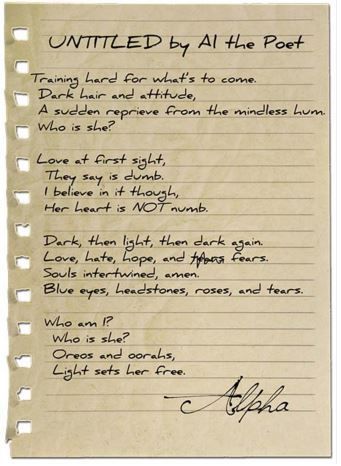 UNTITLED by Al the Poet
Training hard for what's to come.
Dark hair and attitude,
A sudden reprieve from the mindless hum.
Who is she?
Love at first sight,
They say is dumb.
I believe in it though,
Her heart is NOT numb.
Dark, then light, then dark again.
Love, hate, hope, and fears.
Souls intertwined, amen.
Blue eyes, headstones, roses, and tears.
Who am I?
Who is she?
Oreos and oorahs,
Light sets her free.
Alpha